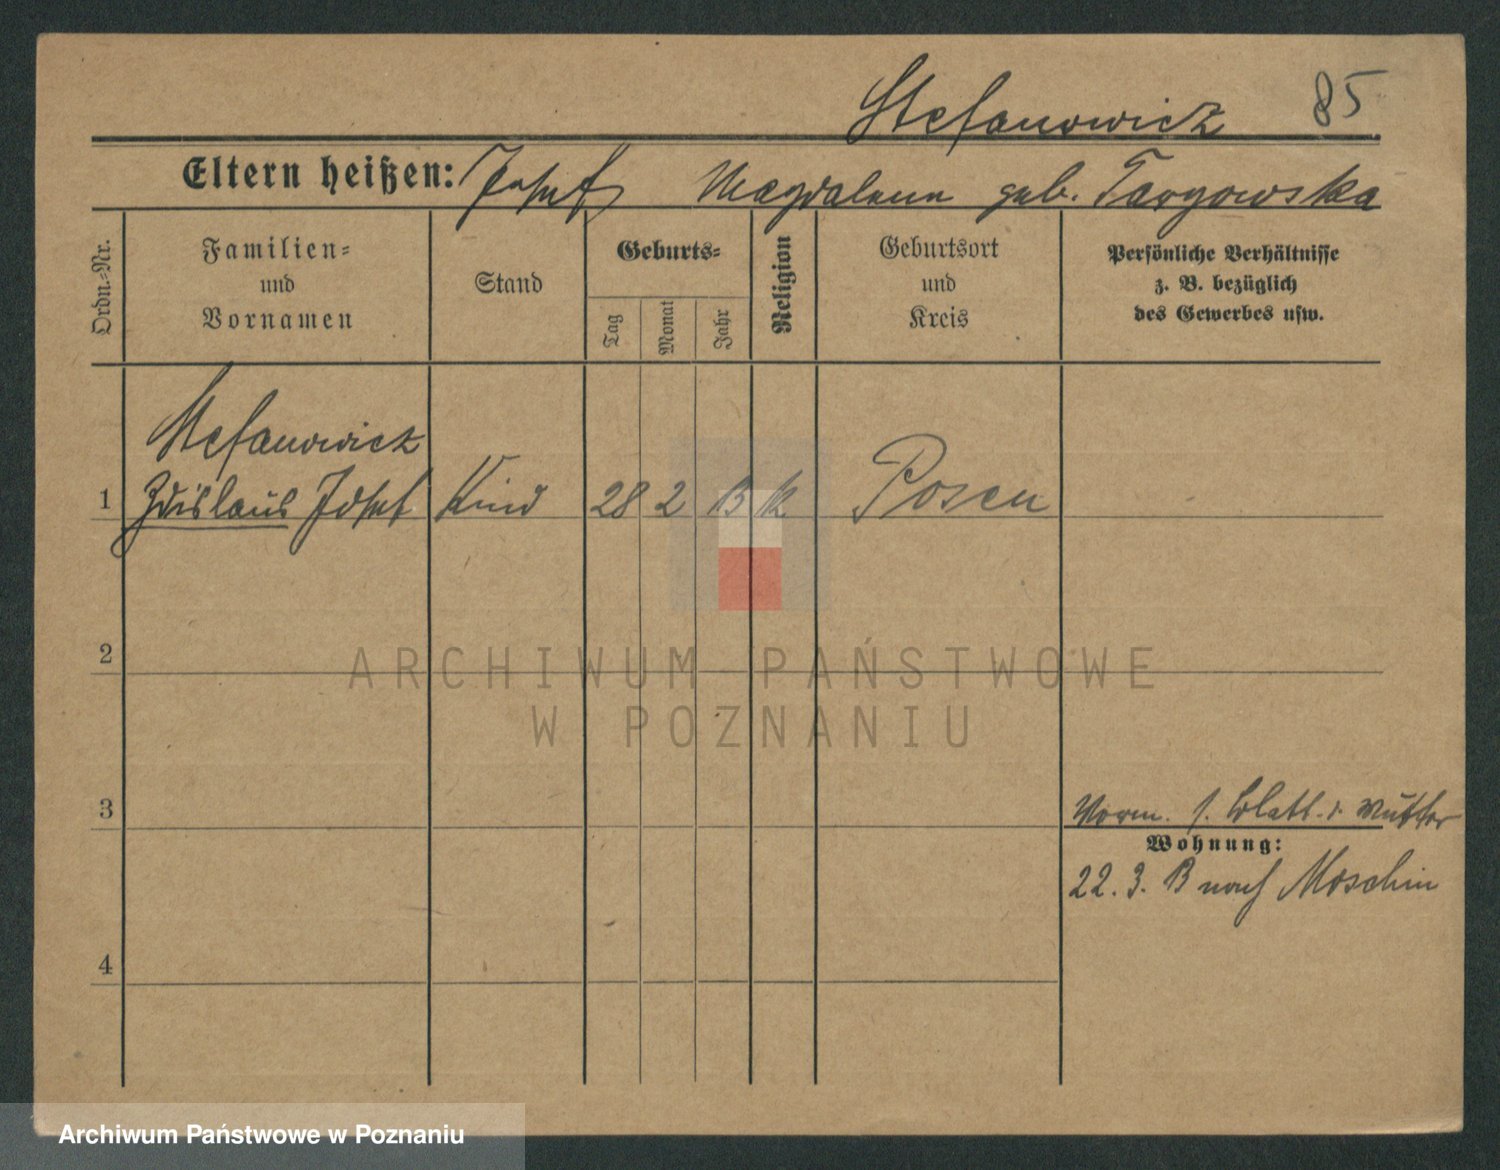 Stefanowicz 85
Eltern heißen: Josef Magdalena geb. Targowska
Ordn.-Nr.
Familien-
und
Vornamen
Stand
Geburts-
Tag
Monat
Jahr
Religion
Geburtsort
und
Kreis
Persönliche Verhältnisse
z. B. bezüglich
des Gewerbes usw.
Stefanowicz
1 Zdislaus Josef Kind 28 2 13 k Posen
2
3
Vorm. s. Blatt d. Mutter
Wohnung:
22. 3. 13 nach Moschin
4
ARCHIWUM PAŃSTWOWE
W POZNANIU
Archiwum Państwowe w Poznaniu